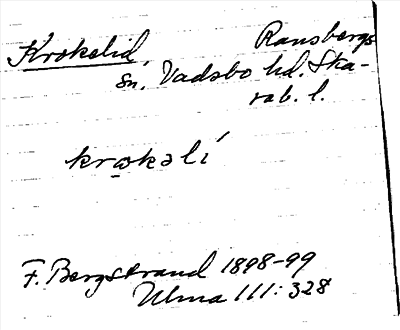 Krokelid, Ransbergs
sn. Vadsbo hd. Ska-
rab. l.
krǫkəlí
F. Bergstrand 1898-99
Ulma 111: 328